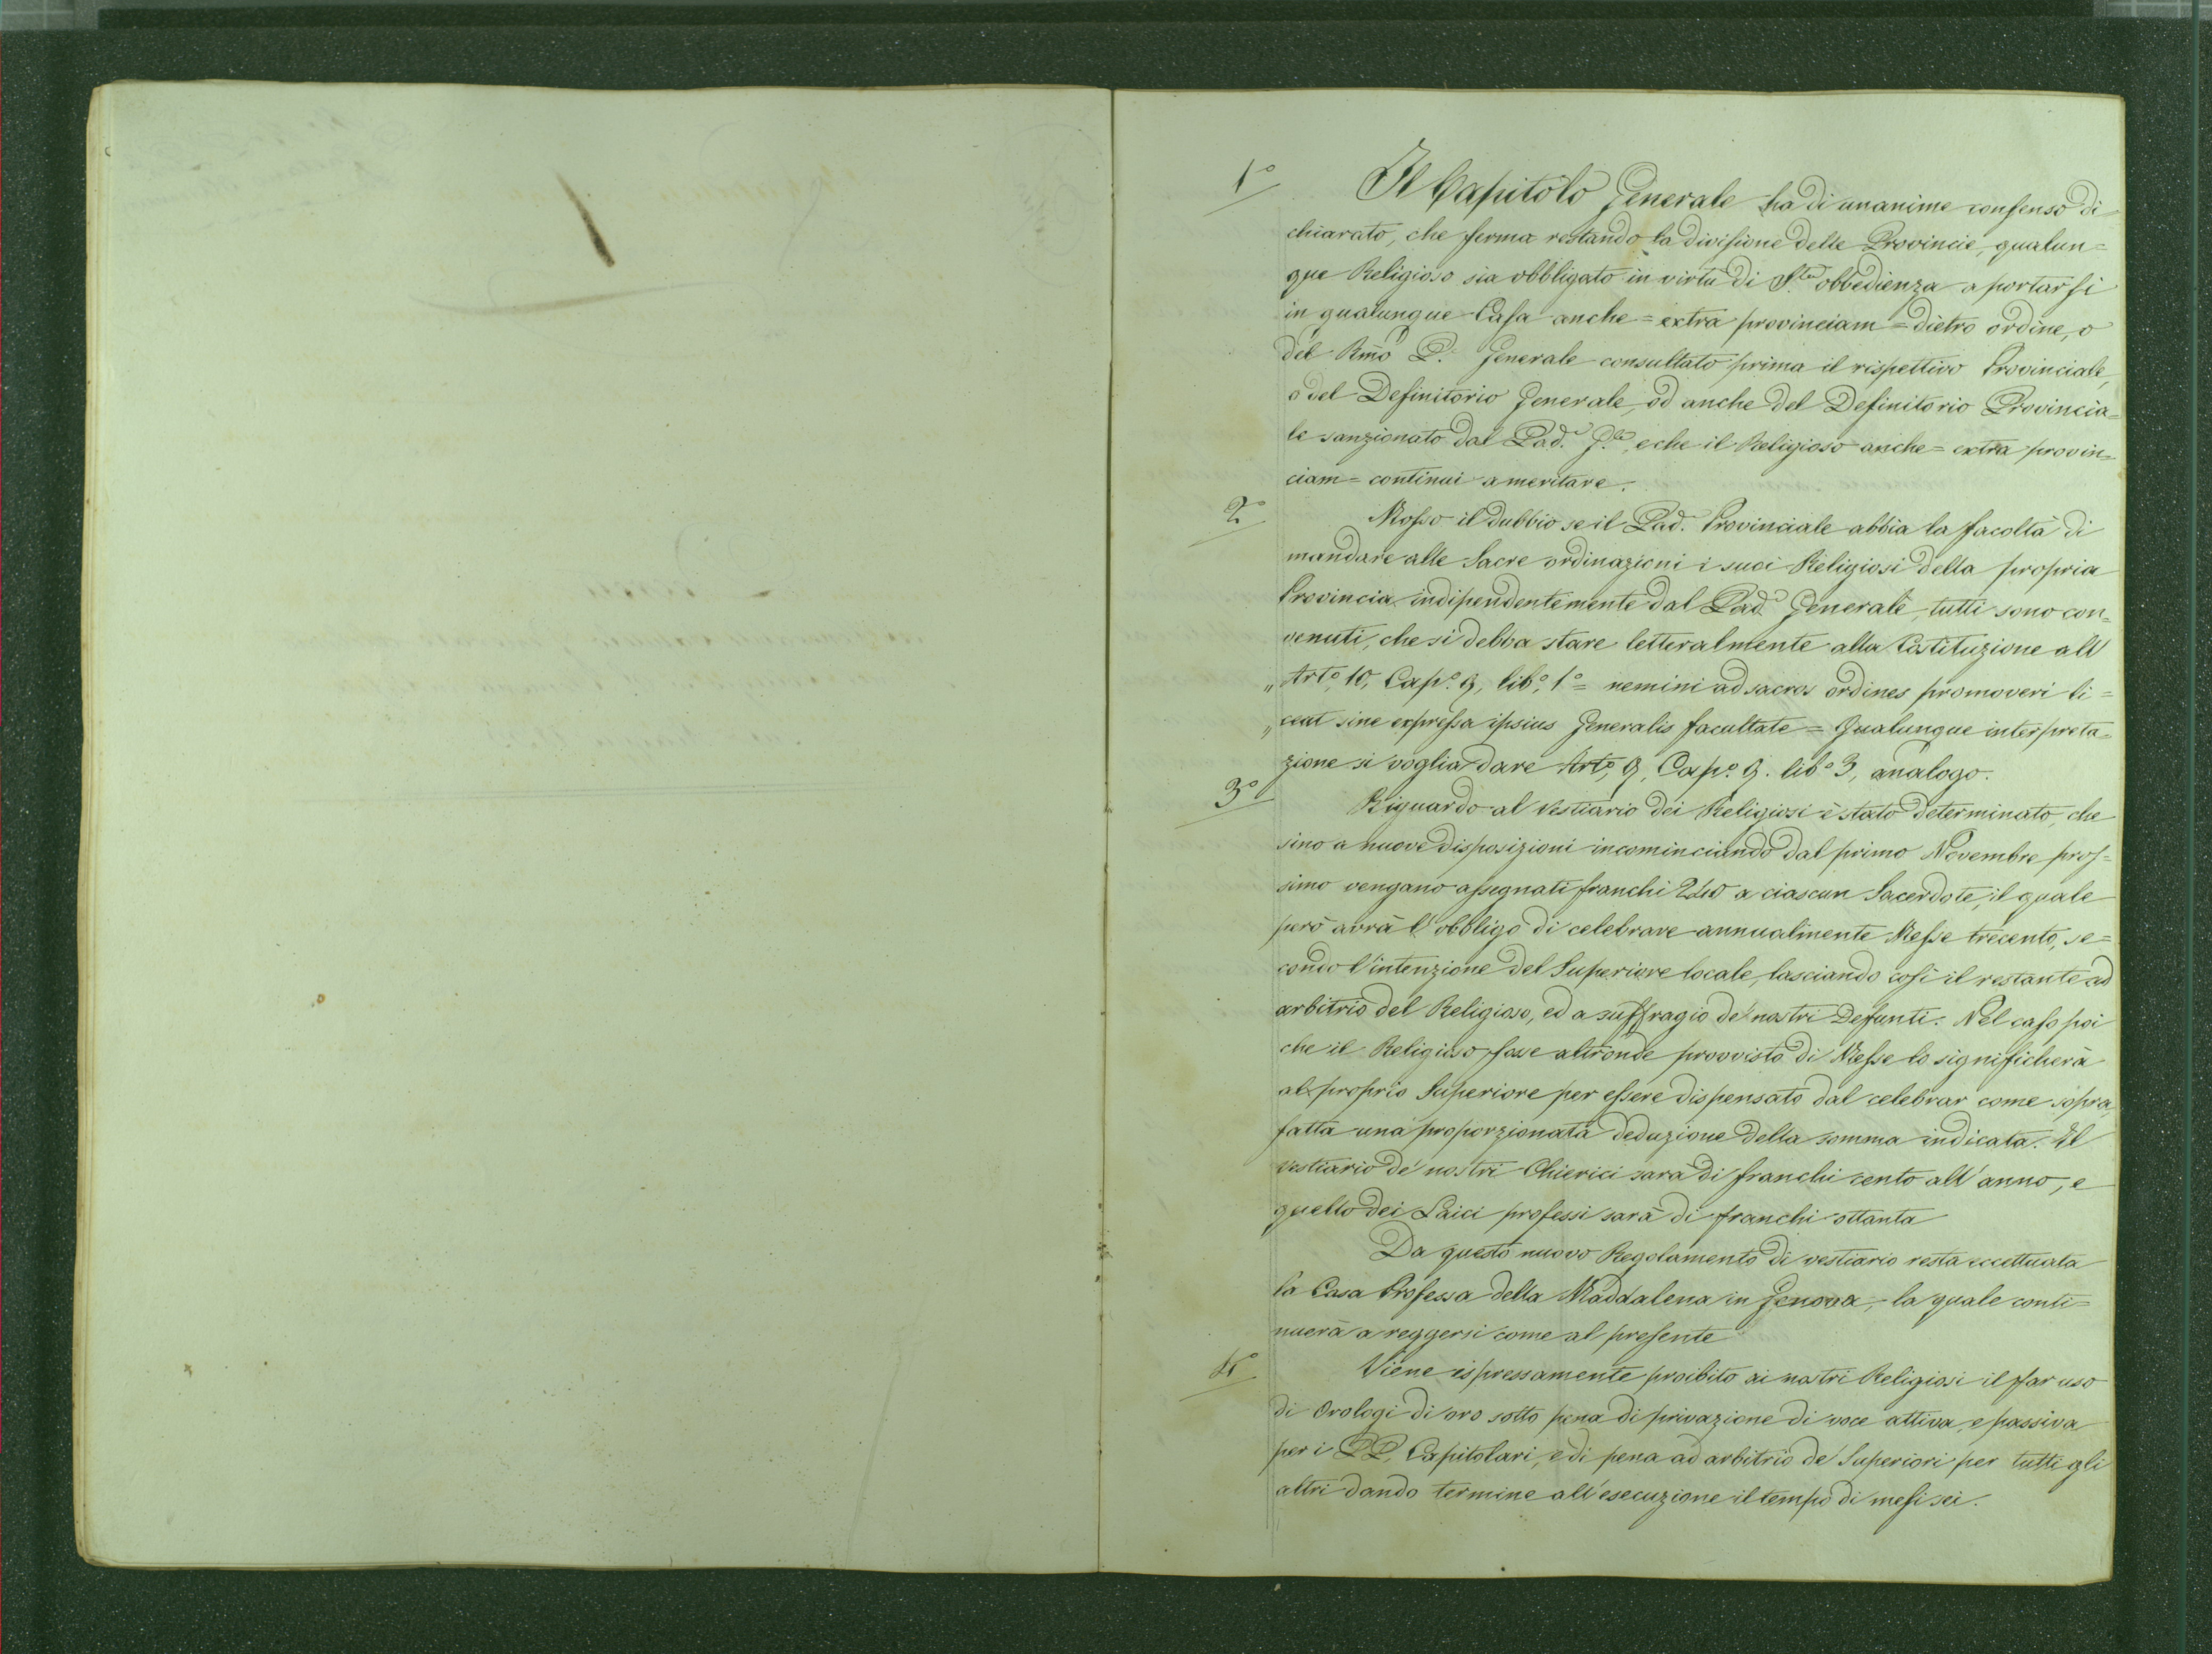 1°
Il Capitolo Generale ha di unanime consenso di-
chiarato, che ferma restando la divisione delle Provincie, qualun=
que Religioso sia obbligato in virtù di S.ta obbedienza a portarsi
in qualunque Casa anche = extra provinciam = dietro ordine, o
del Rmo P. Generale consultato prima il rispettivo Provinciale,
o del Definitorio Generale, od anche del Definitorio Provincia=
le sanzionato dal Pad.e G.le, e che il Religioso anche = extra provin=
ciam = continui a meritare.
2°
Mosso il dubbio se il Pad. Provinciale abbia la facoltà di
mandare alle Sacre ordinazioni i suoi Religiosi della propria
Provincia indipendentemente dal Pad.e Generale, tutti sono con=
venuti, che si debba stare letteralmente alla Costituzione all'
„ Art.° 10, Cap.° 9, lib.° 1° = nemini ad sacros ordines promoveri li=
„ ceat sine expressa ipsius Generalis facultate = Qualunque interpreta=
zione si voglia dare Art.° 9, Cap.° 9. lib.° 3, analogo.
3°
Riguardo al Vestiario dei Religiosi è stato determinato, che
sino a nuove disposizioni incominciando dal primo Novembre pros=
simo vengano assegnati franchi 240 a ciascun Sacerdote, il quale
però avrà l'obbligo di celebrare annualmente Messe trecento, se=
condo l'intenzione del Superiore locale, lasciando così il restante ad
arbitrio del Religioso, ed a suffragio de' nostri Defunti. Nel caso poi
che il Religioso fosse altronde provvisto di Messe lo significherà
al proprio Superiore per essere dispensato dal celebrar come sopra,
fatta una proporzionata deduzione della somma indicata. Il
vestiario de' nostri Chierici sarà di franchi cento all'anno, e
quello dei Laici professi sarà di franchi ottanta
Da questo nuovo Regolamento di vestiario resta eccettuata
la Casa Professa della Maddalena in Genova, la quale conti=
nuerà a reggersi come al presente
4°
Viene espressamente proibito ai nostri Religiosi il far uso
di Orologi di oro sotto pena di privazione di voce attiva, e passiva
per i PP. Capitolari, e di pena ad arbitrio de' Superiori per tutti gli
altri dando termine all'esecuzione il tempo di mesi sei.